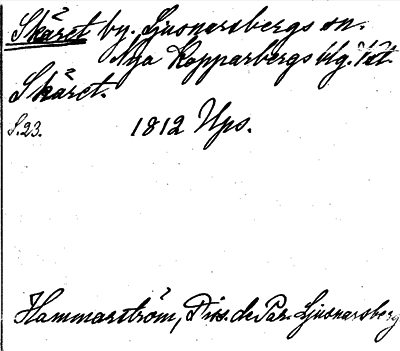 Skäret by. Ljusnarsbergs sn.
Nya Kopparbergs blg. Vät.
Skäret.
S.23. 1812 Ups.
Hammarström, Diss. de Par. Ljusnarsberg